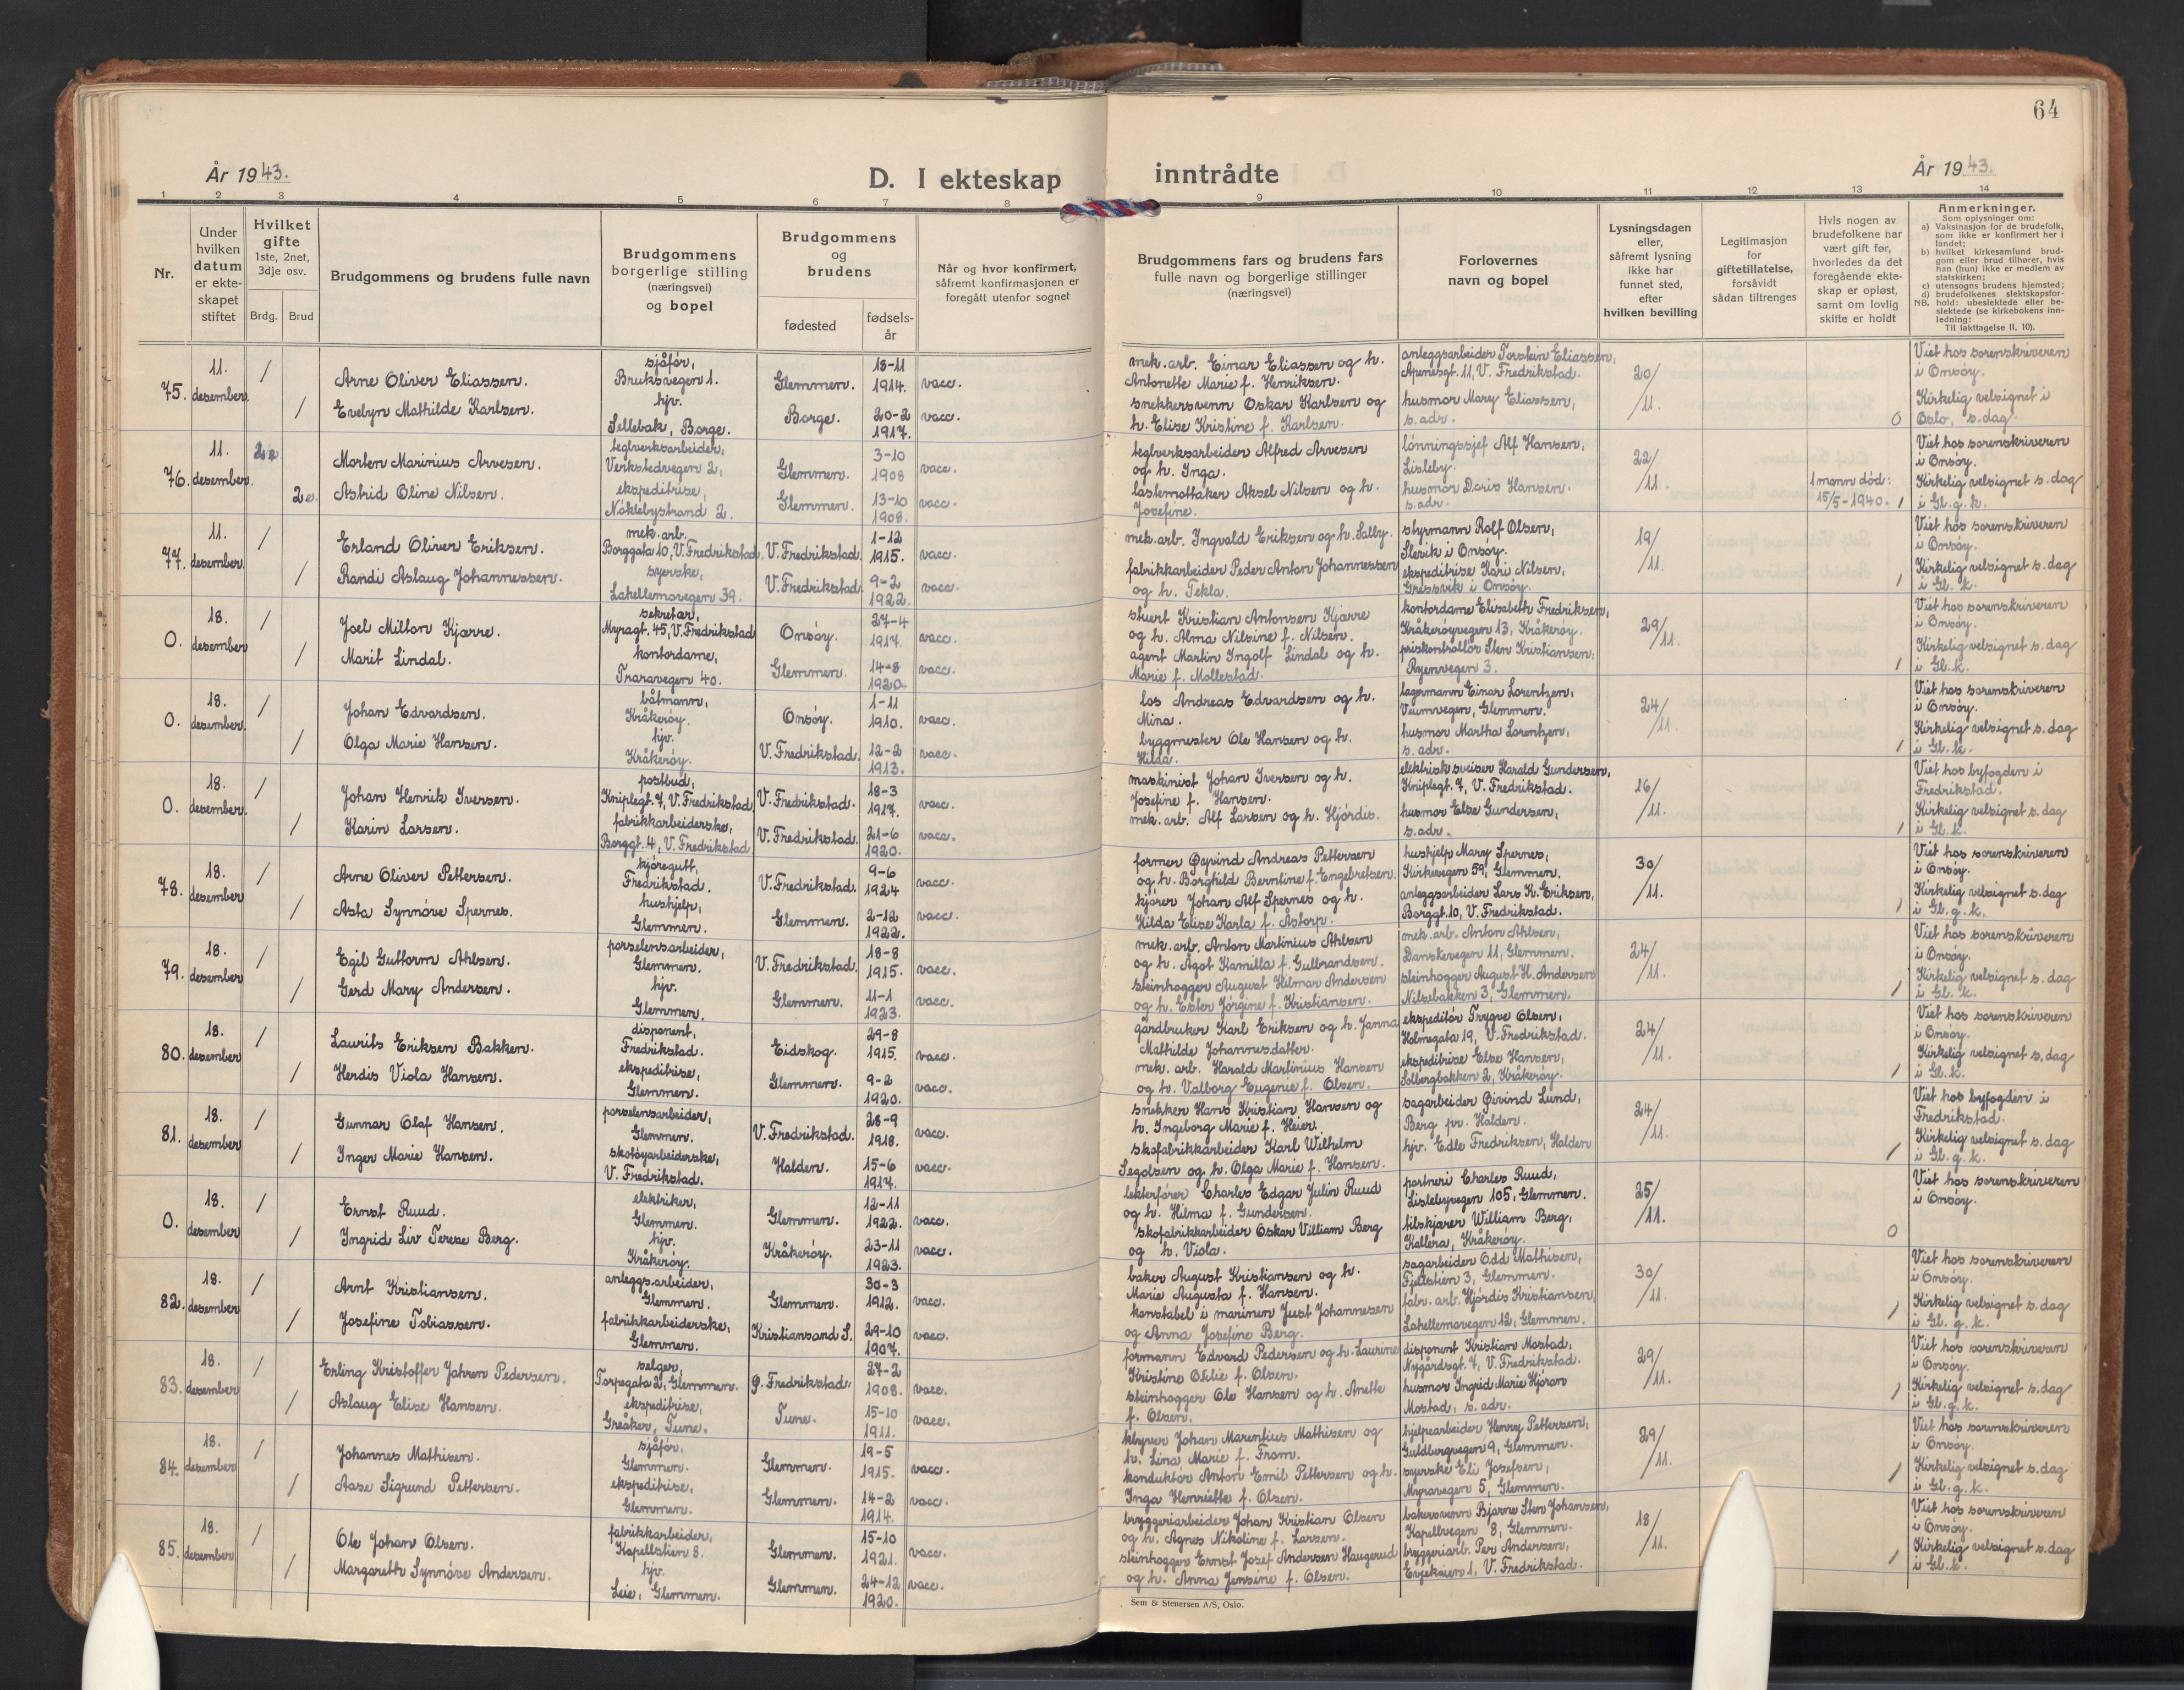 64
År 1943.
D. I ekteskap inntrådte
År 1943.
1 2 3 4 5 6 7 8 9 10 11 12 13 14
Nr.
Under hvilken datum er ekte-skapet stiftet
Hvilket gifte 1ste, 2net, 3dje osv.
Brdg. Brud
Brudgommens og brudens fulle navn
Brudgommens borgerlige stilling (næringsvei) og bopel
Brudgommens og brudens
fødested
fødsels-år
Når og hvor konfirmert, såfremt konfirmasjonen er foregått utenfor sognet
Brudgommens fars og brudens fars fulle navn og borgerlige stillinger (næringsvei)
Forlovernes navn og bopel
Lysningsdagen eller, såfremt lysning ikke har funnet sted, efter hvilken bevilling
Legitimasjon for giftetillatelse, forsåvidt sådan tiltrenges
Hvis nogen av brudefolkene har vært gift før, hvorledes da det foregående ekte-skap er opløst, samt om lovlig skifte er holdt
Anmerkninger.
Som oplysninger om:
a) Vaksinasjon for de brudefolk, som ikke er konfirmert her i landet;
b) hvilket kirkesamfund brud-gom eller brud tilhører, hvis han (hun) ikke er medlem av statskirken;
c) utensogns brudens hjemsted;
d) brudefolkenes slektskapsfor-hold: ubeslektede eller be-slektede (se kirkebokens inn-ledning:
NB. Til iakttagelse II, 10).
75. 11. desember. / Arne Oliver Eliassen. sjåfør, Bruksvegen 1. Glemmen. 18-11 1914. vacc. mek. arb. Einar Eliassen og h. Antonette Marie f. Henriksen. anleggsarbeider Torstein Eliassen, Apenesgt. 11, V. Fredrikstad. 20/11. Viet hos sorenskriveren i Onsøy.
/ Evelyn Mathilde Karlsen. hjv. Sellebak, Borge. Borge. 20-2 1917. vacc. snekkersvenn Oskar Karlsen og h. Elise Kristine f. Karlsen. husmor Mary Eliassen, s. adr. 0 Kirkelig velsignet i Oslo, s. dag.
76. 11. desember. Morten Marinius Arvesen. teglverksarbeider, Verkstedvegen 2, Glemmen. 3-10 1908 vacc. teglverksarbeider Alfred Arvesen og h. Inga. lønningssjef Alf Hansen, Lisleby. 22/11. Viet hos sorenskriveren i Onsøy.
Astrid Oline Nilsen. ekspeditrise, Nøklebystrand 2. Glemmen. 13-10 1908. vacc. lastemottaker Aksel Nilsen og h. Josefine. husmor Doris Hansen. s. adr. 1 mann død: 15/5-1940. / Kirkelig velsignet s. dag i Gl. g. k.
77. 11. desember. / Erland Oliver Eriksen. mek. arb. Borggata 10, V. Fredrikstad. V. Fredrikstad. 1-12 1915. vacc. mek. arb. Ingvald Eriksen og h. Salby. styrmann Rolf Olsen, Slevik i Onsøy. 19/11. Viet hos sorenskriveren i Onsøy.
/ Randi Aslaug Johannessen. syerske, Lahellemovegen 39. V. Fredrikstad. 9-2 1922. vacc. fabrikkarbeider Peder Anton Johannessen og h. Tekla. ekspeditrise Kari Nilsen, Gressvik i Onsøy. / Kirkelig velsignet s. dag i Gl. k.
0. 18. desember / Joel Milton Kjærre. sekretær, Myragt. 45, V. Fredrikstad Onsøy. 27-4 1917. vacc. stuert Kristian Antonsen Kjærre og h. Alma Nilsine f. Nilsen. kontordame Elisabeth Fredriksen, Kråkerøyvegen 13, Kråkerøy. 29/11. Viet hos sorenskriveren i Onsøy.
/ Marit Lindal. kontordame, Traravegen 40. Glemmen. 14-8 1920. vacc. agent Martin Ingolf Lindal og h. Marie f. Mollestad. priskontrollør Sten Kristiansen, Ryenvegen 3. / Kirkelig velsignet s. dag i Gl. k.
0. 18. desember. / Johan Edvardsen. båtmann, Kråkerøy. Onsøy. 1-11 1910. vacc. los Andreas Edvardsen og h. Mina. lagermann Einar Lorentzen, Veumvegen, Glemmen. 24/11. Viet hos sorenskriveren i Onsøy.
/ Olga Marie Hansen. hjv. Kråkerøy. V. Fredrikstad. 12-2 1913. vacc. byggmester Ole Hansen og h. Hilda. husmor Martha Lorentzen, s. adr. / Kirkelig velsignet s. dag i Gl. k.
0. 18. desember. / Johan Henrik Iversen. postbud, Kniplegt. 7, V. Fredrikstad V. Fredrikstad. 18-3 1917. vacc. maskinist Johan Iversen og h. Josefine f. Hansen. elektrisk sveiser Harald Gundersen, Kniplegt. 7, V. Fredrikstad. 16/11. Viet hos byfogden i Fredrikstad.
/ Karin Larsen. fabrikkarbeiderske, Borggt. 4, V. Fredrikstad V. Fredrikstad. 21-6 1920. vacc. mek. arb. Alf Larsen og h. Hjørdis. husmor Else Gundersen, s. adr. / Kirkelig velsignet s. dag i Gl. k.
78. 18. desember / Arne Oliver Pettersen. kjøregutt, Fredrikstad. V. Fredrikstad. 9-6 1924 vacc. former Øyvind Andreas Pettersen og h. Borghild Berntine f. Engebretsen. hushjelp Mary Spernes, Kirkevegen 59, Glemmen. 30/11. Viet hos sorenskriveren i Onsøy.
/ Asta Synnøve Spernes. hushjelp, Glemmen. Glemmen. 2-12 1922. vacc. kjører Johan Alf Spernes og h. Hilda Elise Karla f. Åstorp. anleggsarbeider Lars K. Eriksen, Borggt. 10, V. Fredrikstad. / Kirkelig velsignet s. dag i Gl. g. k.
79. 18. desember / Egil Guttorm Ahlsen. porselensarbeider, Glemmen. V. Fredrikstad. 18-8 1915. vacc. mek. arb. Anton Martinius Ahlsen og h. Agot Kamilla f. Gulbrandsen. mek. arb. Anton Ahlsen, Danskevegen 11, Glemmen. 24/11. Viet hos sorenskriveren i Onsøy.
/ Gerd Mary Andersen. hjv. Glemmen. Glemmen. 11-1 1923. vacc. steinhogger August Hilmar Andersen og h. Ester Jørgine f. Kristiansen. steinhogger August H. Andersen Nilsebakken 3, Glemmen. / Kirkelig velsignet s. dag i Gl. k.
80. 18. desember / Laurits Eriksen Bakken. disponent, Fredrikstad. Eidskog. 29-8 1915. vacc. gårdbruker Karl Eriksen og h. Janna Mathilde Johannesdatter. ekspeditør Trygve Olsen, Holmegata 19, V. Fredrikstad. 24/11. Viet hos sorenskriveren i Onsøy.
/ Herdis Viola Hansen. ekspeditrise, Glemmen. Glemmen. 9-2 1920. vacc. mek. arb. Harald Martinius Hansen og h. Valborg Eugenie f. Olsen. ekspeditrise Else Hansen, Solbergbakken 2, Kråkerøy. / Kirkelig velsignet s. dag i Gl. k.
81. 18. desember / Gunnar Olaf Hansen. porselensarbeider, Glemmen. V. Fredrikstad. 28-9 1918. vacc. snekker Hans Kristian Hansen og h. Ingeborg Marie f. Heier. sagarbeider Øivind Lund, Berg pr. Halden. 24/11. Viet hos byfogden i Fredrikstad.
/ Inger Marie Hansen. skotøyarbeiderske, V. Fredrikstad. Halden. 15-6 1917. vacc. skofabrikkarbeider Karl Wilhelm Segolsen og h. Olga Marie f. Hansen. hjv. Edle Fredriksen, Halden / Kirkelig velsignet s. dag i Gl. g. k.
0. 18. desember / Ernst Ruud. elektriker, Glemmen. Glemmen. 12-11 1922. vacc. lekterfører Charles Edgar Julin Ruud og h. Hilma f. Gundersen. partneri Charles Ruud, Lislebyvegen 105, Glemmen. 25/11. Viet hos sorenskriveren i Onsøy.
/ Ingrid Liv Terese Berg. hjv. Kråkerøy. Kråkerøy. 23-11 1923. vacc. skofabrikkarbeider Oskar William Berg og h. Viola. tilskjærer William Berg, Kallera, Kråkerøy. 0
82. 18. desember / Arnt Kristiansen. anleggsarbeider, Glemmen. Glemmen. 30-3 1912. vacc. baker August Kristiansen og h. Marie Augusta f. Hansen. sagarbeider Odd Mathisen, Fjellstien 3, Glemmen. 30/11. Viet hos sorenskriveren i Onsøy.
/ Josefine Tobiassen. fabrikkarbeiderske, Glemmen. Kristiansand S. 29-10 1907. vacc. konstabel i marinen Just Johannesen og Anna Josefine Berg. fabr. arb. Hjørdis Kristiansen, Lahellemovegen 12, Glemmen. / Kirkelig velsignet s. dag i Gl. g. k.
83. 18. desember / Erling Kristoffer Jahren Pedersen. selger, Torpegata 2, Glemmen. G. Fredrikstad. 27-2 1908. vacc. formann Edvard Pedersen og h. Laurine Kristine Otilie f. Olsen. disponent Kristian Mostad, Nygårdsgt. 7, V. Fredrikstad. 29/11. Viet hos sorenskriveren i Onsøy.
/ Aslaug Elise Hansen. ekspeditrise, Greåker, Tune. Tune. 15-10 1911. vacc. steinhogger Ole Hansen og h. Anette f. Olsen. husmor Ingrid Marie Hjøran Mostad, s. adr. / Kirkelig velsignet s. dag i Gl. g. k.
84. 18. desember / Johannes Mathisen. sjåfør, Glemmen. Glemmen. 19-5 1915. vacc. kløyver Johan Marentius Mathisen og h. Lina Marie f. From. hjelpearbeider Henry Pettersen, Guldbergvegen 9, Glemmen. 29/11. Viet hos sorenskriveren i Onsøy.
/ Aase Sigrund Pettersen. ekspeditrise, Glemmen. Glemmen. 14-2 1914. vacc. konduktør Anton Emil Pettersen og h. Inga Henriette f. Olsen. syerske Eli Josefsen, Myravegen 5, Glemmen. / Kirkelig velsignet s. dag i Gl. g. k.
85. 18. desember / Ole Johan Olsen. fabrikkarbeider, Kapellstien 8. Glemmen. 15-10 1921. vacc. bryggeriarbeider Johan Kristian Olsen og h. Agnes Nikoline f. Larsen. bakersvenn Bjarne Sten Johansen, Kapellvegen 8, Glemmen. 18/11. Viet hos sorenskriveren i Onsøy.
/ Margareth Synnøve Andersen. hjv. Leie, Glemmen. Glemmen. 24-12 1920. vacc. steinhogger Ernst Josef Andersen Haugerud og h. Anna Jensine f. Olsen. bryggeriarb. Per Andersen, Evjekaien 1, V. Fredrikstad. / Kirkelig velsignet s. dag i Gl. k.
Sem & Stenersen A/S, Oslo.